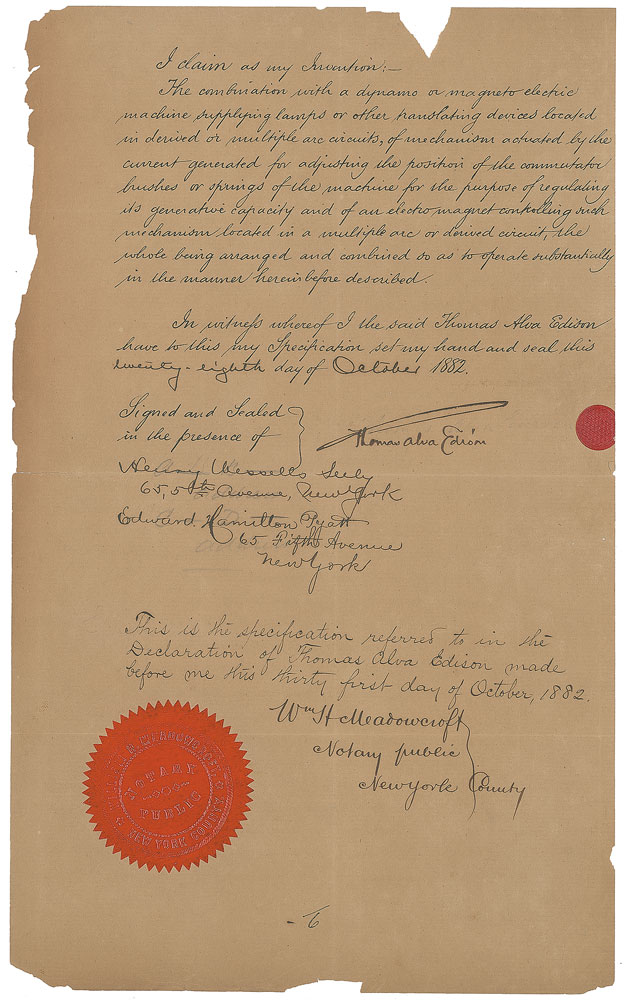 I claim as my Invention:—
The combination with a dynamo or magneto electric
machine supplying lamps or other translating devices located
in derived or multiple arc circuits, of mechanism actuated by the
current generated for adjusting the position of the commutator
brushes or springs of the machine for the purpose of regulating
its generative capacity and of an electro magnet controlling such
mechanism located in a multiple arc or derived circuit, the
whole being arranged and combined so as to operate substantially
in the manner hereinbefore described.
In witness whereof I the said Thomas Alva Edison
have to this my Specification set my hand and seal this
twenty-eighth day of October 1882.
Signed and Sealed
in the presence of
Thomas Alva Edison
Henry Wessells Seely
65, 5th Avenue, New York
Edward Hamilton Pyatt
65 Fifth Avenue
New York
This is the specification referred to in the
Declaration of Thomas Alva Edison made
before me this thirty first day of October, 1882.
Wm H Meadowcroft
Notary public
New York County
NOTARY
PUBLIC
NEW YORK COUNTY
- 6